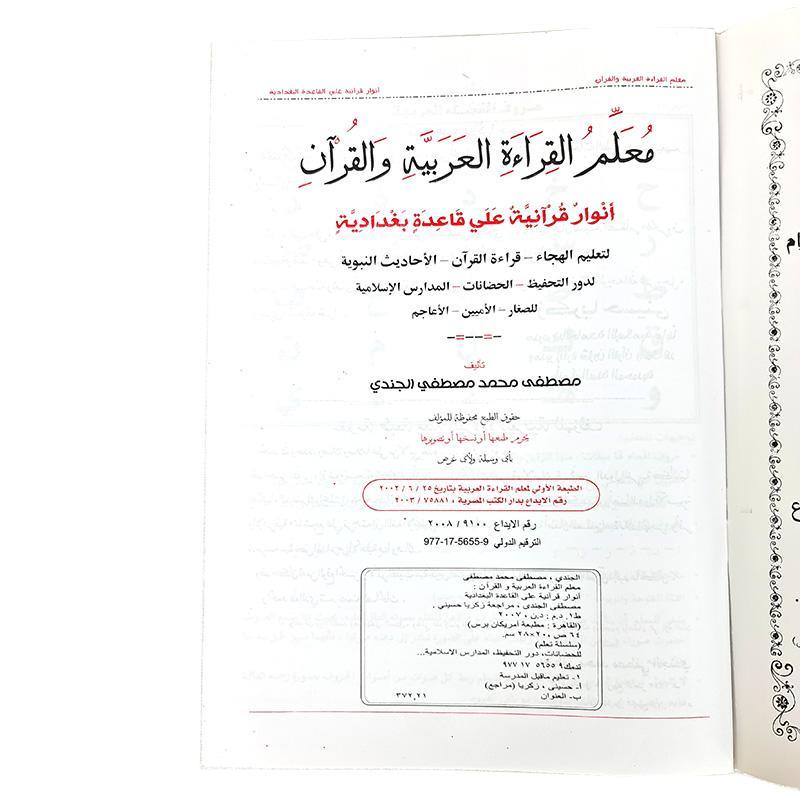 معلم القراءة العربية والقرآن
أنوار قرآنية علي القاعدة البغدادية
مُعَلِّمُ القِرَاءَةِ العَرَبِيَّةِ وَالقُرْآنِ
أَنْوَارٌ قُرْآنِيَّةٌ عَلَي قَاعِدَةٍ بَغْدَادِيَّةٍ
لتعليم الهجاء - قراءة القرآن - الأحاديث النبوية
لدور التحفيظ - الحضانات - المدارس الإسلامية
للصغار - الأميين - الأعاجم
تأليف
مصطفى محمد مصطفي الجندي
حقوق الطبع محفوظة للمؤلف
يحرم طبعها أو نسخها أو تصويرها
بأى وسيلة ولأى غرض
الطبعة الأولي لمعلم القراءة العربية بتاريخ ٢٥ / ٦ / ٢٠٠٢
رقم الايداع بدار الكتب المصرية ، ٧٥٨٨١ / ٢٠٠٣
رقم الايداع ٩١٠٠ / ٢٠٠٨
الترقيم الدولي 9-5655-17-977
الجندي ، مصطفى محمد مصطفى
معلم القراءة العربية و القرآن :
أنوار قرآنية على القاعدة البغدادية
مصطفى الجندى ، مراجعة زكريا حسيني .
ط١. د.م : د.ن ، ٢٠٠٧
(القاهرة : مطبعة أمريكان برس)
٦٤ ص ، ٢٠×٢٨ سم.
(سلسلة تعلم)
للحضانات، دور التحفيظ، المدارس الاسلامية...
تدمك ٩ ٥٦٥٥ ١٧ ٩٧٧
١- تعليم ماقبل المدرسة
أ- حسيني ، زكريا (مراجع)
ب- العنوان
٣٧٢,٢١